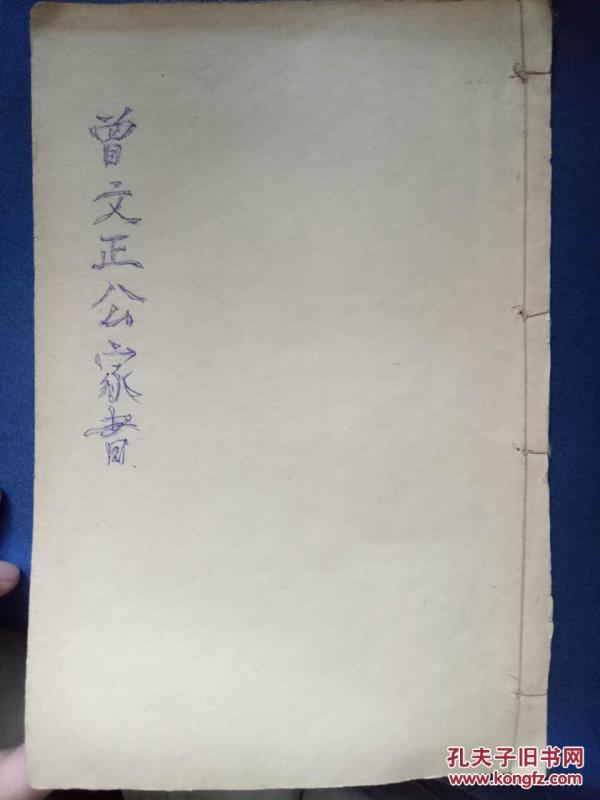 曾文正公家書
孔夫子旧书网
www.kongfz.com